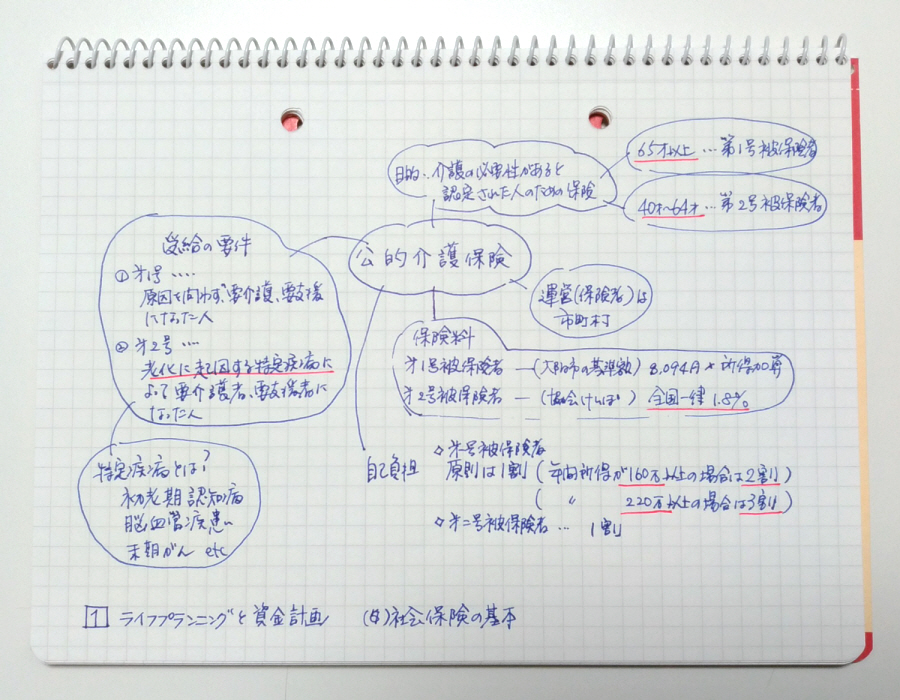 目的‥介護の必要性があると
認定された人のための保険
65才以上 … 第1号被保険者
40才~64才 … 第2号被保険者
公的介護保険
運営(保険者)は
市町村
受給の要件
① 第1号 ‥‥
原因を問わず、要介護、要支援
になった人
② 第2号 ‥‥
老化に起因する特定疾病に
よって要介護者、要支援者に
なった人
特定疾病とは?
初老期認知病
脳血管疾患
末期がん etc
保険料
第1号被保険者 ―(大阪市の基準額) 8,094円 × 所得加算
第2号被保険者 ―(協会けんぽ) 全国一律 1.8%
自己負担
◇第一号被保険者
原則は1割 (年間所得が160万以上の場合は2割)
( 〃 220万以上の場合は3割)
◇第二号被保険者 … 1割
1 ライフプランニングと資金計画 社会保険の基本